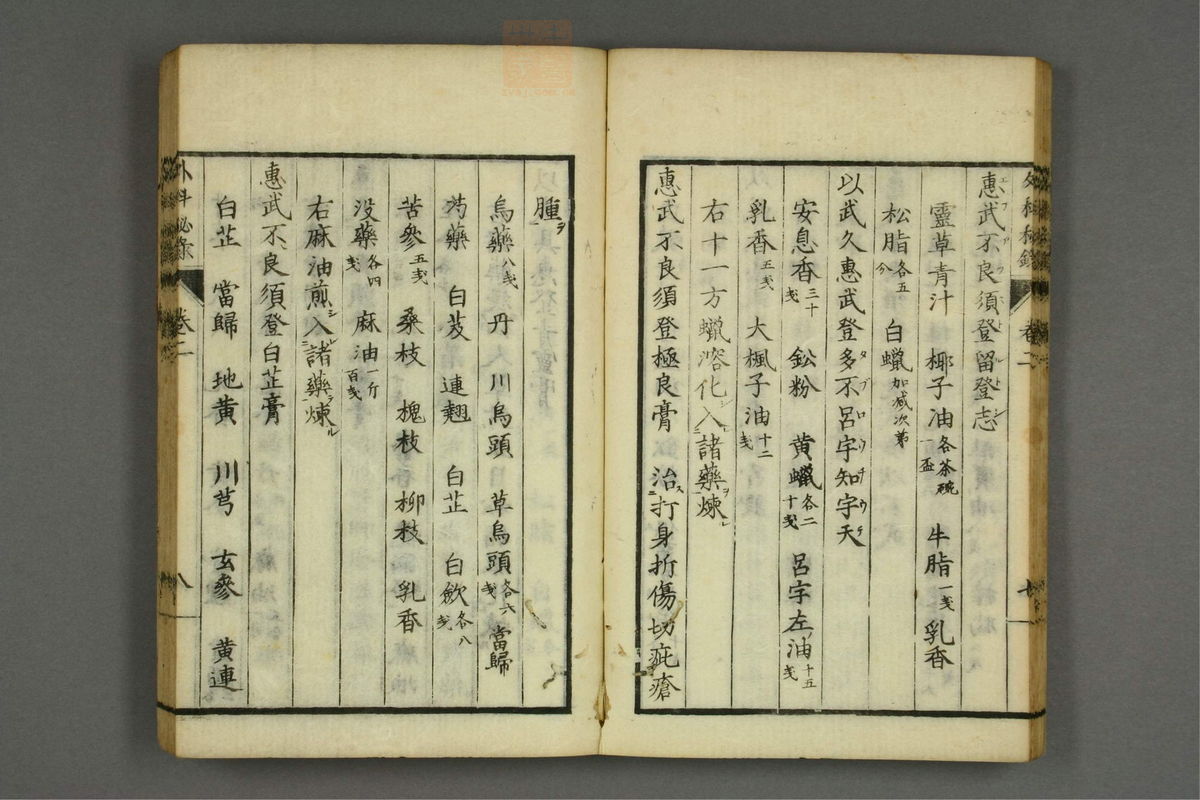 外科秘録 卷二 七
惠武不良須登留登志
靈草青汁 椰子油各茶碗一盃 牛脂一戔 乳香
松脂各五分 白蠟加减次第
以武久惠武登多不呂宇知宇天
安息香三十戔 鈆粉 黄蠟各二十戔 呂宇左油十五戔
乳香五戔 大楓子油十二戔
右十一方蠟溶化シ入レ諸藥ヲ煉ル
惠武不良須登極良膏 治ス打身折傷切疵瘡
腫ヲ
烏藥八戔 丹 川烏頭 草烏頭各六戔 當歸
芍藥 白芨 連翹 白芷 白歛各八戔
苦參五戔 桑枝 槐枝 柳枝 乳香
没藥各四戔 麻油一斤百戔
右麻油煎シ入レ諸藥ヲ煉ル
惠武不良須登白芷膏
白芷 當歸 地黄 川芎 玄參 黄連
外科秘录 卷二 八